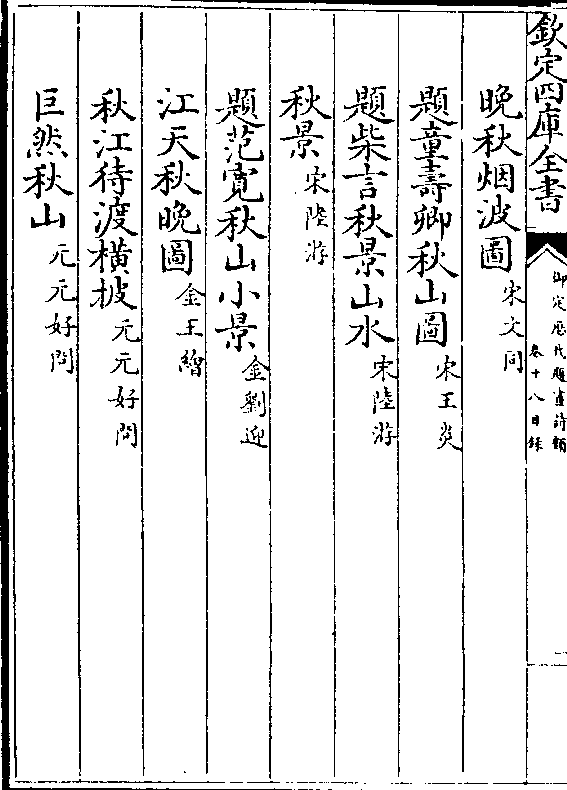 欽定四庫全書
御定歷代題畫詩類
卷十八目錄
一
晚秋烟波圖 宋文同
題童壽卿秋山圖 宋王炎
題柴言秋景山水 宋陸游
秋景 宋陸游
題范寬秋山小景 金劉迎
江天秋晚圖 金王繪
秋江待渡橫披 元元好問
巨然秋山 元元好問